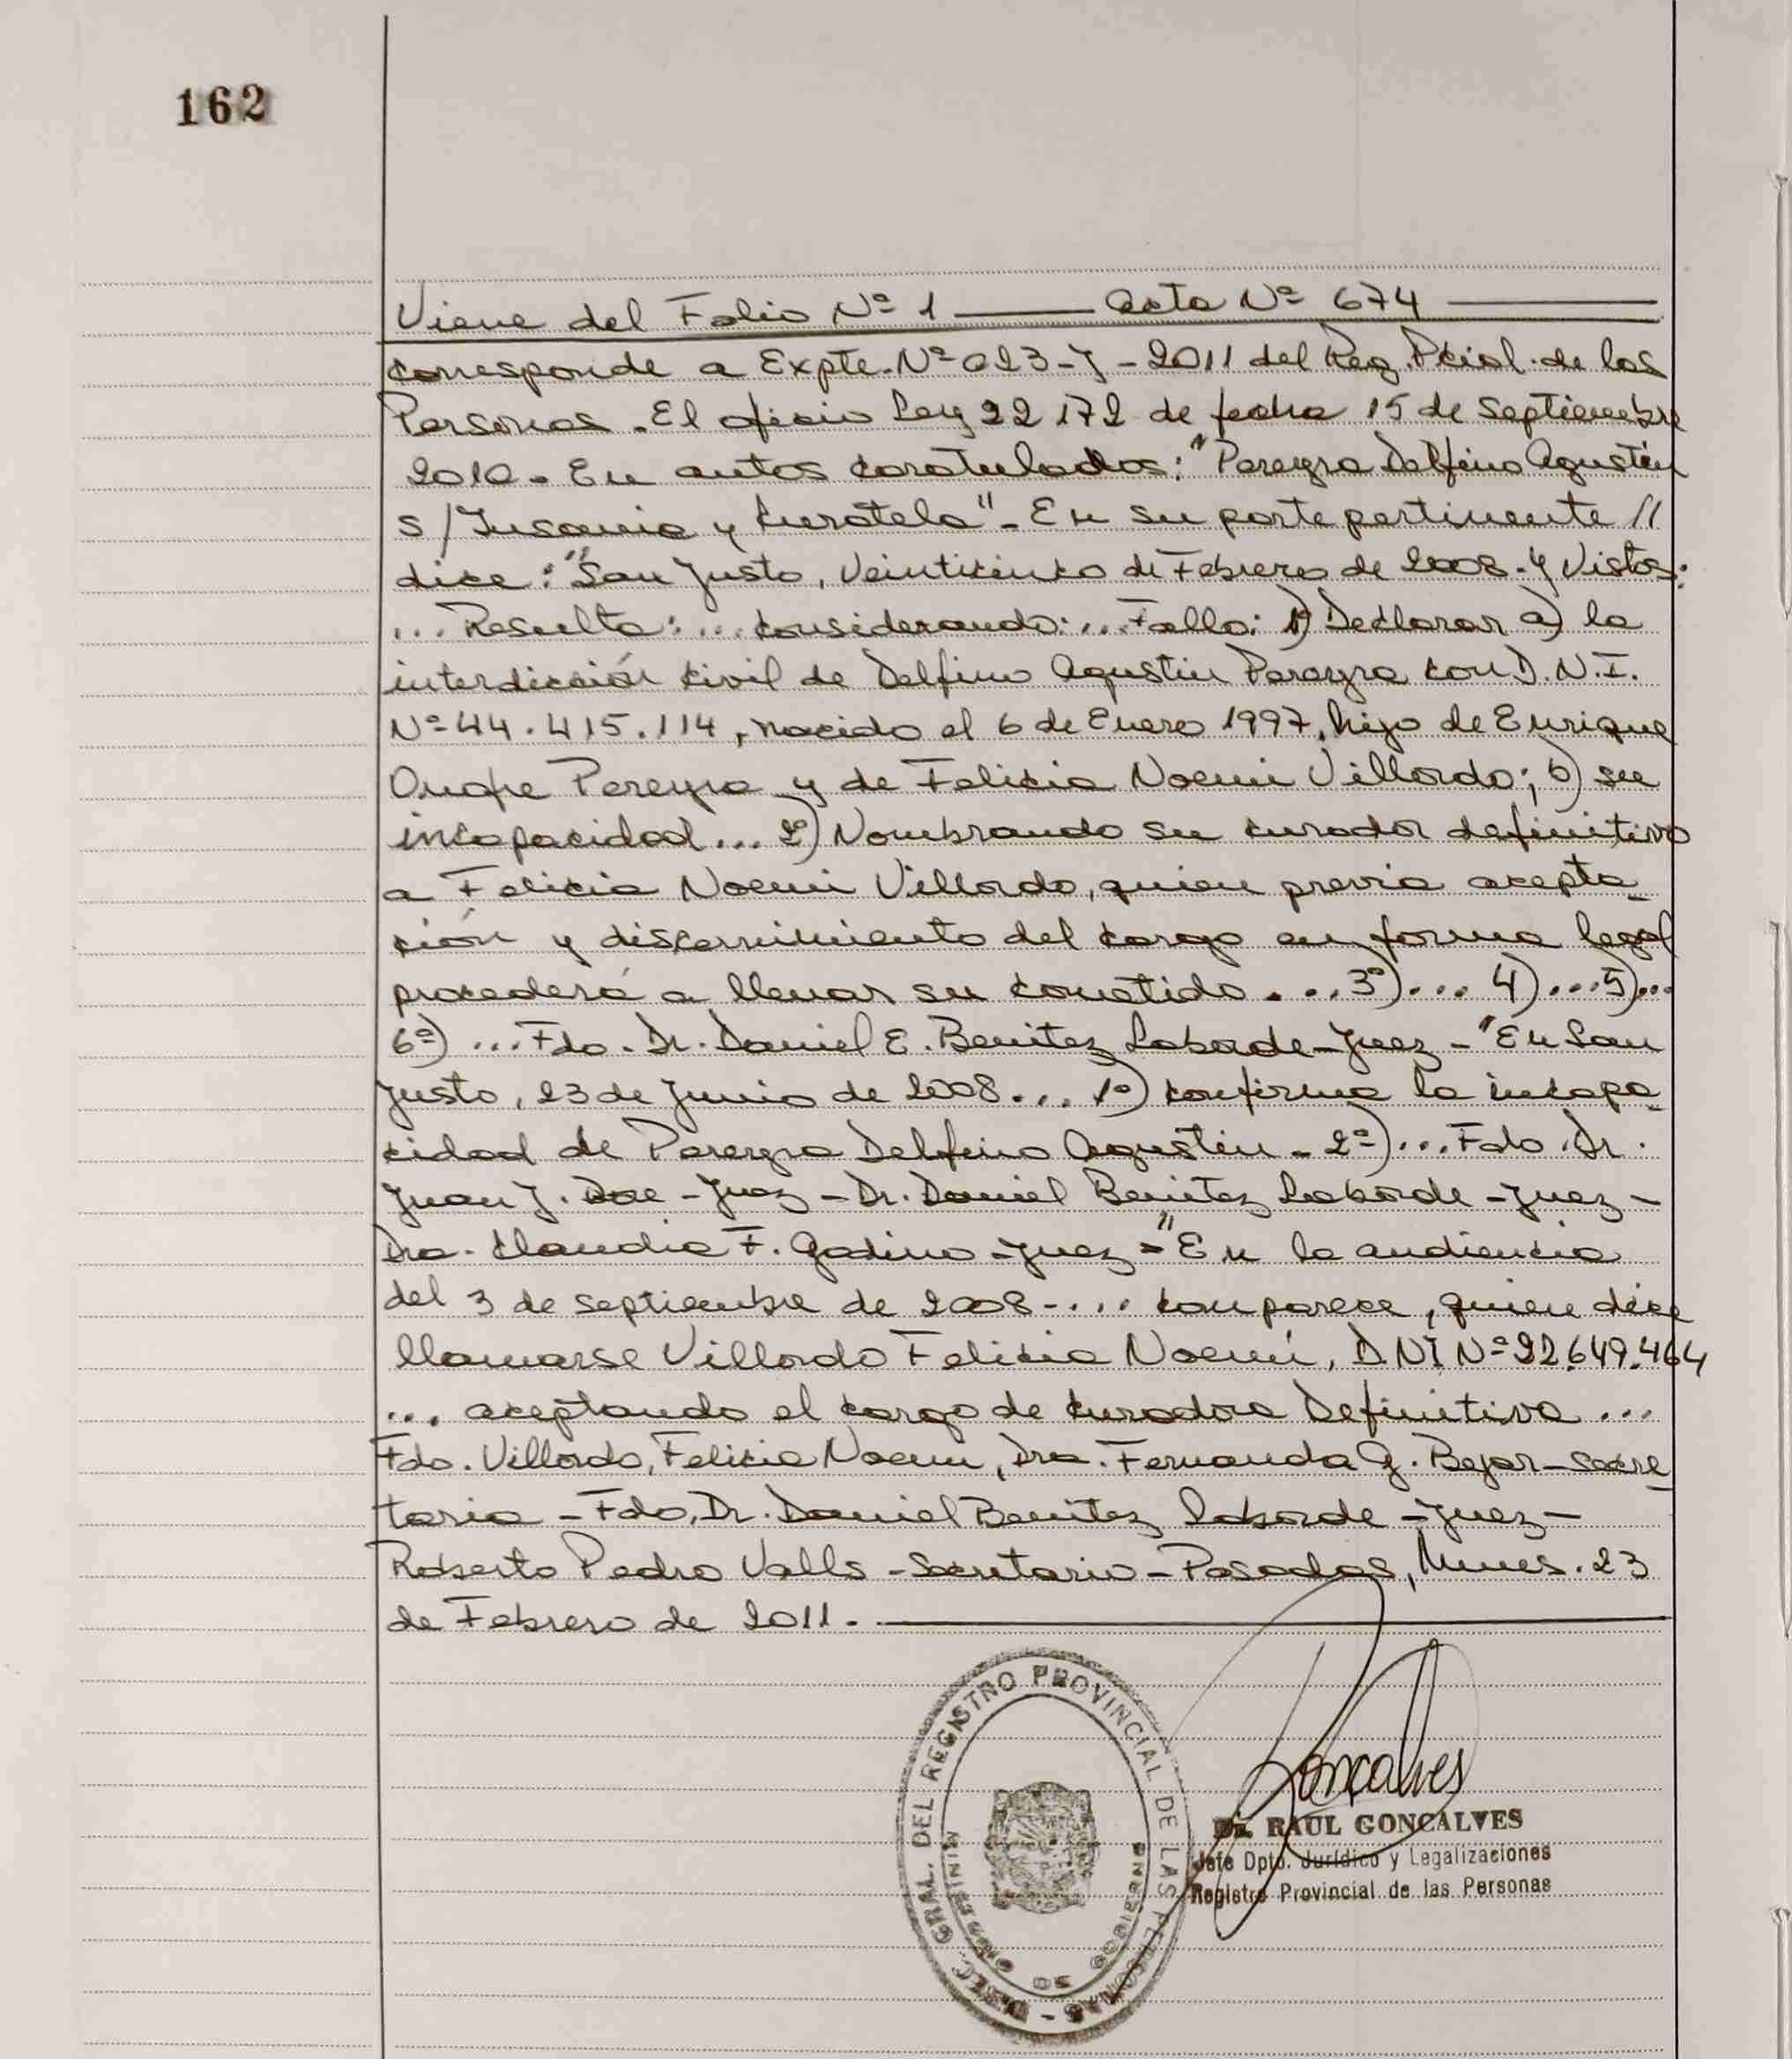 162
Viene del Folio Nº 1 ——— Acta Nº 674 ———
Corresponde a Expte. Nº 023-J-2011 del Reg. Pcial. de las
Personas. El oficio Ley 22172 de fecha 15 de Septiembre
2010. En autos caratulados: "Pereyra Delfino Agustin
s/Insania y Curatela"- En su parte pertinente //
dice: "San Justo, Veinticinco de Febrero de 2008. Y Vistos:
... Resulta: ... Considerando: ... Fallo: 1º) Declarar a) la
interdicción civil de Delfino Agustin Pereyra con D.N.I.
Nº 44.415.114, nacido el 6 de Enero 1997, hijo de Enrique
Onofre Pereyra y de Felicia Noemi Villordo; b) su
incapacidad... 2º) Nombrando su curador definitivo
a Felicia Noemi Villordo, quien previa acepta-
ción y discernimiento del cargo en forma legal
procederá a llenar su cometido. ...3º)... 4)...5)...
6º) ...Fdo. Dr. Daniel E. Benitez Laborde-Juez- "En San
Justo, 23 de Junio de 2008... 1º) confirma la incapa-
cidad de Pereyra Delfino Agustin - 2º)... Fdo. Dr.
Juan J. -Juez- Dr. Daniel Benitez Laborde -Juez-
Dra. Claudia F. Godino -Juez- "En la audiencia
del 3 de septiembre de 2008-... comparece, quien dice
llamarse Villordo Felicia Noemí, DNI Nº 22.649.464
... aceptando el cargo de Curadora Definitiva ...
Fdo. Villordo, Felicia Noemi, Dra. Fernanda G. Bejar-Secre-
taria - Fdo. Dr. Daniel Benitez Laborde -Juez-
Roberto Pedro Valls -Secretario- Posadas, Mnes. 23
de Febrero de 2011.
GRAL. DEL REGISTRO PROVINCIAL DE LAS PERSONAS
MINISTERIO DE GOBIERNO
Goncalves
Dr. RAUL GONCALVES
Jefe Dpto. Jurídico y Legalizaciones
Registro Provincial de las Personas